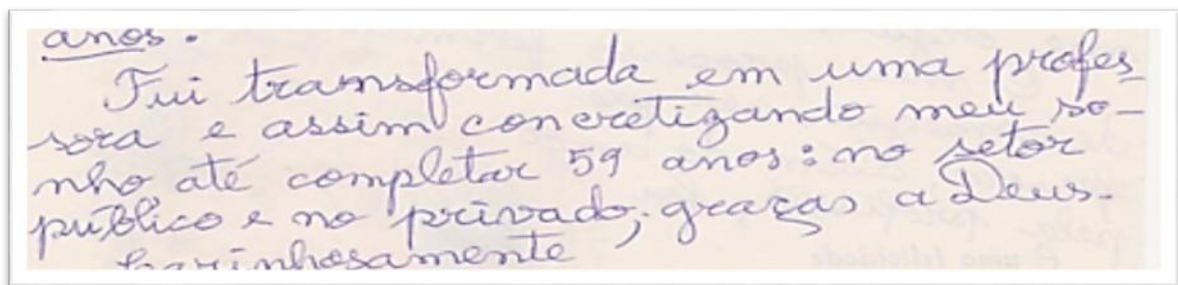 anos.
Fui transformada em uma profes_
sora e assim concretizando meu so-
nho até completar 59 anos: no setor
público e no privado; graças a Deus.
harinhosamente